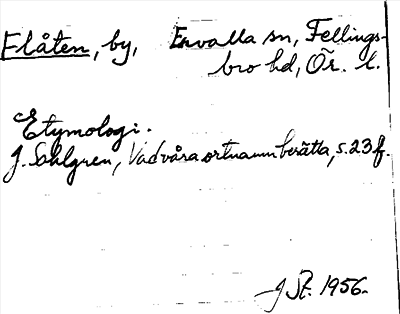 Flåten, by, Ervalla sn, Fellings-
bro hd, Ör. l.
Etymologi.
J. Sahlgren, Vad våra ortnamn berätta, s. 23 f.
J St. 1956.